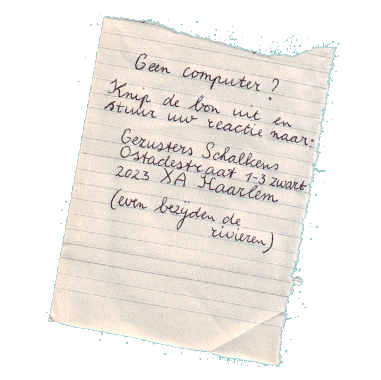 Geen computer?
Knip de bon uit en
stuur uw reactie naar:
Gezusters Schalkens
Ostadestraat 1-3 zwart
2023 XA Haarlem
(even bezijden de
rivieren)